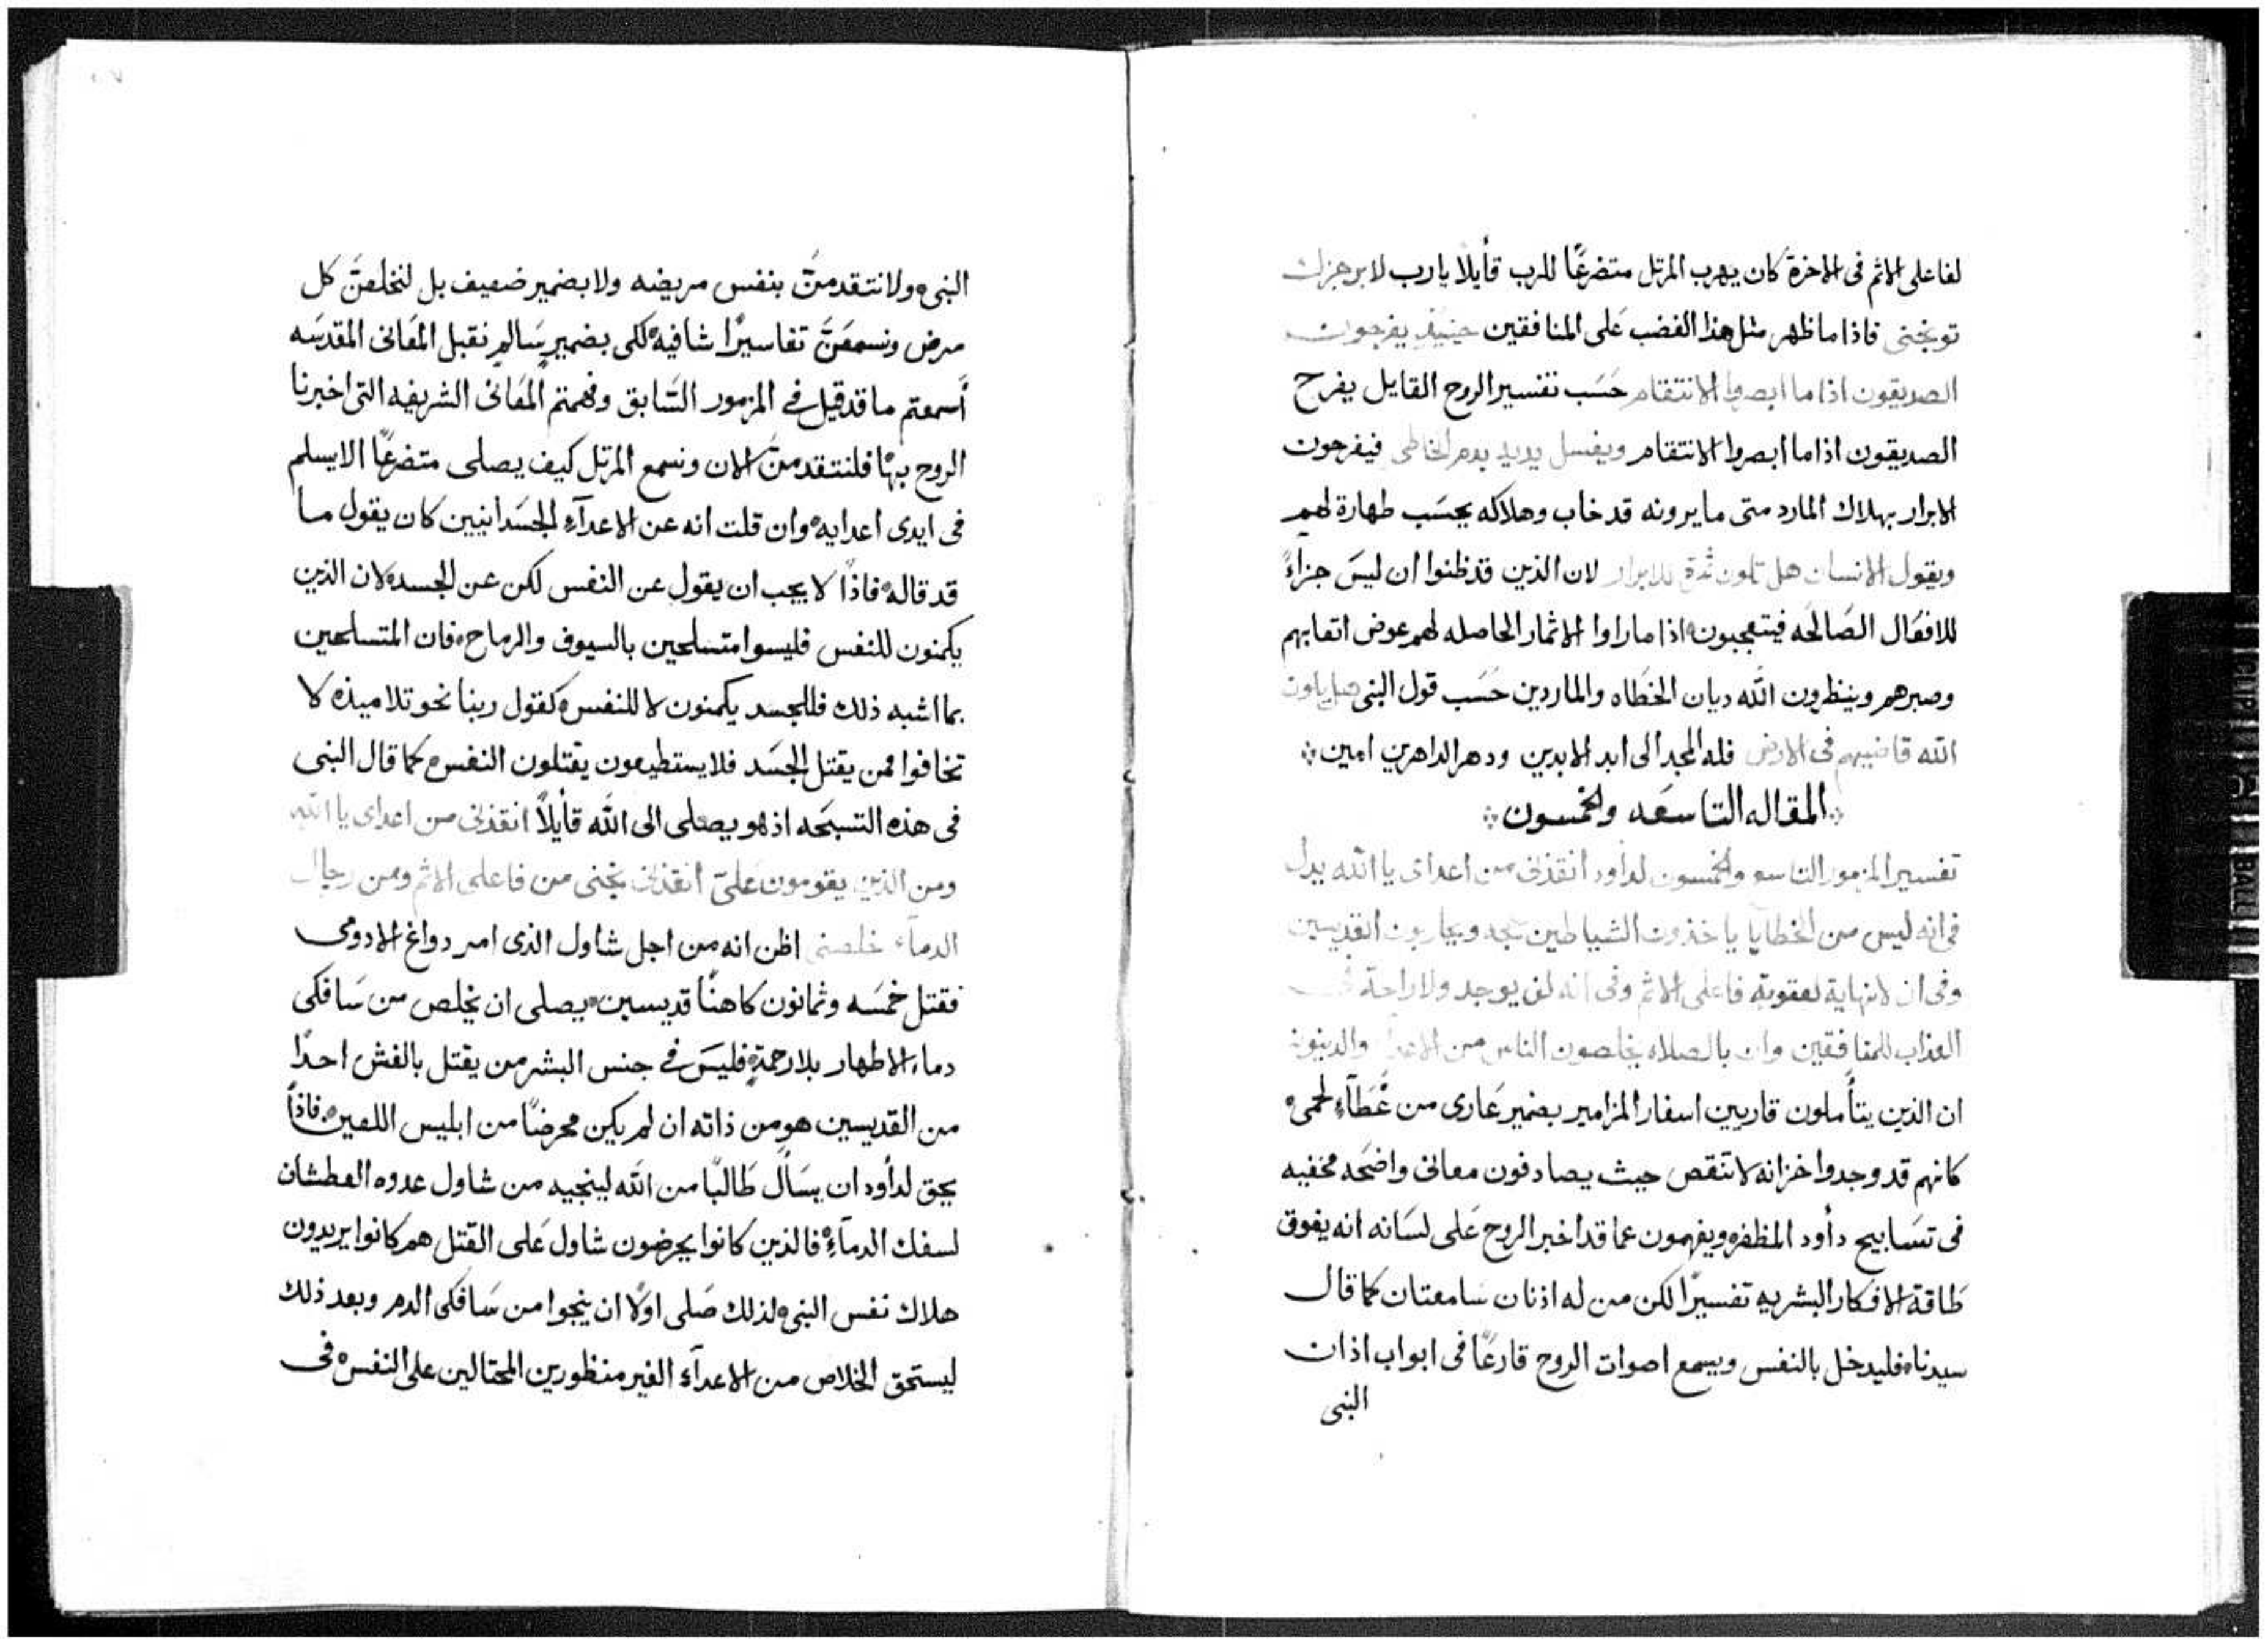 لفاعلى الاثم فى الاخرة كان يهرب المرتل متضرعًا للرب قأيلا يارب لا برجزك
توبخنى فاذا ماظهر مثل هذا الغضب عَلى المنافقين حينيذٍ يفرحون
الصديقون اذا ما ابصروا الانتقام حَسَب تفسير الروح القايل يفرح
الصديقون اذا ما ابصروا الانتقام ويغسل يديه بدم الخاطى فيفرحون
الابرار بهلاك المارد متى مايرونه قد خاب وهلاكه يحسَب طهارة لهم
ويقول الانسان هل تكون ثمرة للابرار لان الذين قد ظنوا ان ليسَ جزاءً
للافعَال الصَالحَه فيتعجبون اذا ماراوا الاثمار الحاصله لهم عوض اتعابهم
وصبرهم وينظرون اللّه ديان الخطَاه والماردين حَسَب قول النبى هل يكون
اللّه قاضيهم فى الارض فله المجد الى ابد الابدين ودهر الداهرين امين
المقاله التاسعَه والخمسون
تفسير المزمور التاسع والخمسون لدأود انقذنى من اعداى يا اللّه يدل
فى انه ليس من الخطايا ياخذون الشياطين حجه ويحاربون القديسين
وفى ان لا نهاية لعقوبة فاعلى الاثم وفى انه لن يوجد ولا راحة فى
العذاب للمنافقين وان بالصلاه يخلصون الناس من الاعدا والدينونة
ان الذين يتأملون قاريين اسفار المزامير بضمير عَارى من غَطَآءٍ لحمى
كانهم قد وجدوا خزانه لا تنقص حيث يصادفون معانى واضحَه مخفيه
فى تسَابيح دأود المظفره ويفهمون عما قد اخبر الروح عَلى لسَانه انه يفوق
طَاقة الافكار البشريه تفسيرًا لكن من له اذنان سَامعتان كما قال
سيدنا فليدخل بالنفس ويسمع اصوات الروح قارعًا فى ابواب اذان
النبى
النبى ولا نتقدمنَّ بنفس مريضه ولا بضمير ضعيف بل لنخلعنَّ كل
مرض ونسمعَنَّ تفاسيرًا شافيه لكى بضميرٍ سَالمٍ نقبل المعَانى المقدسَه
أَسمعتم ما قد قيل فى المزمور السَّابق وفهمتم المعَانى الشريفه التى اخبرنا
الروح بهَا فلنتقدمنَّ الان ونسمع المرتل كيف يصلى متضرعًا الا يسلم
فى ايدى اعدايه وان قلت انه عن الاعدآءِ الجسَدانيين كان يقول ما
قد قاله فاذًا لا يجب ان يقول عن النفس لكن عن الجسد لان الذين
يكمنون للنفس فليسوا متسلحين بالسيوف والرماح فان المتسلحين
بما اشبه ذلك فللجسد يكمنون لا للنفس كقول ربنا نحو تلاميذه لا
تخافوا ممن يقتل الجسَد فلا يستطيعون يقتلون النفس كما قال النبى
فى هذه التسبحَه اذ هو يصلى الى اللّه قأيلاً انقذنى من اعداى يا اللّه
ومن الذين يقومون عَلىّ انقذنى نجنى من فاعلى الاثم ومن رجال
الدمآء خلصنى اظن انه من اجل شاول الذى امر دواغ الادومى
فقتل خمسَه وثمانون كاهنًا قديسين يصلى ان يخلص من سَافكى
دماء الاطهار بلا رحمةٍ فليسَ فى جنس البشر من يقتل بالغش احدًا
من القديسين هو من ذاته ان لم يكن محرضًا من ابليس اللعين فاذاً
يحق لدأود ان يسَأل طَالبًا من اللّه لينجيه من شاول عدوه العطشان
لسفك الدمآءِ فالذين كانوا يحرضون شاول عَلى القتل هم كانوا يريدون
هلاك نفس النبى لذلك صَلى اولاً ان ينجوا من سَافكى الدم وبعد ذلك
ليستحق الخلاص من الاعدآء الغير منظورين المحتالين على النفس فى